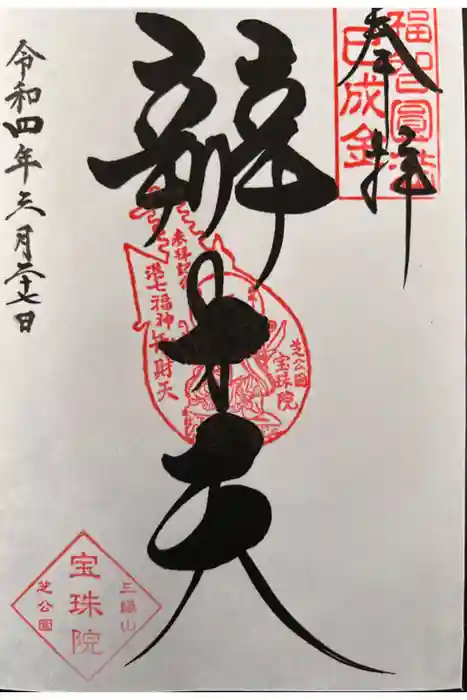 奉拝
福智圓満
巳成金
辨才天
参拝記念
港七福神
弁財天
芝公園
宝珠院
令和四年三月二十七日
三縁山
宝珠院
芝公園